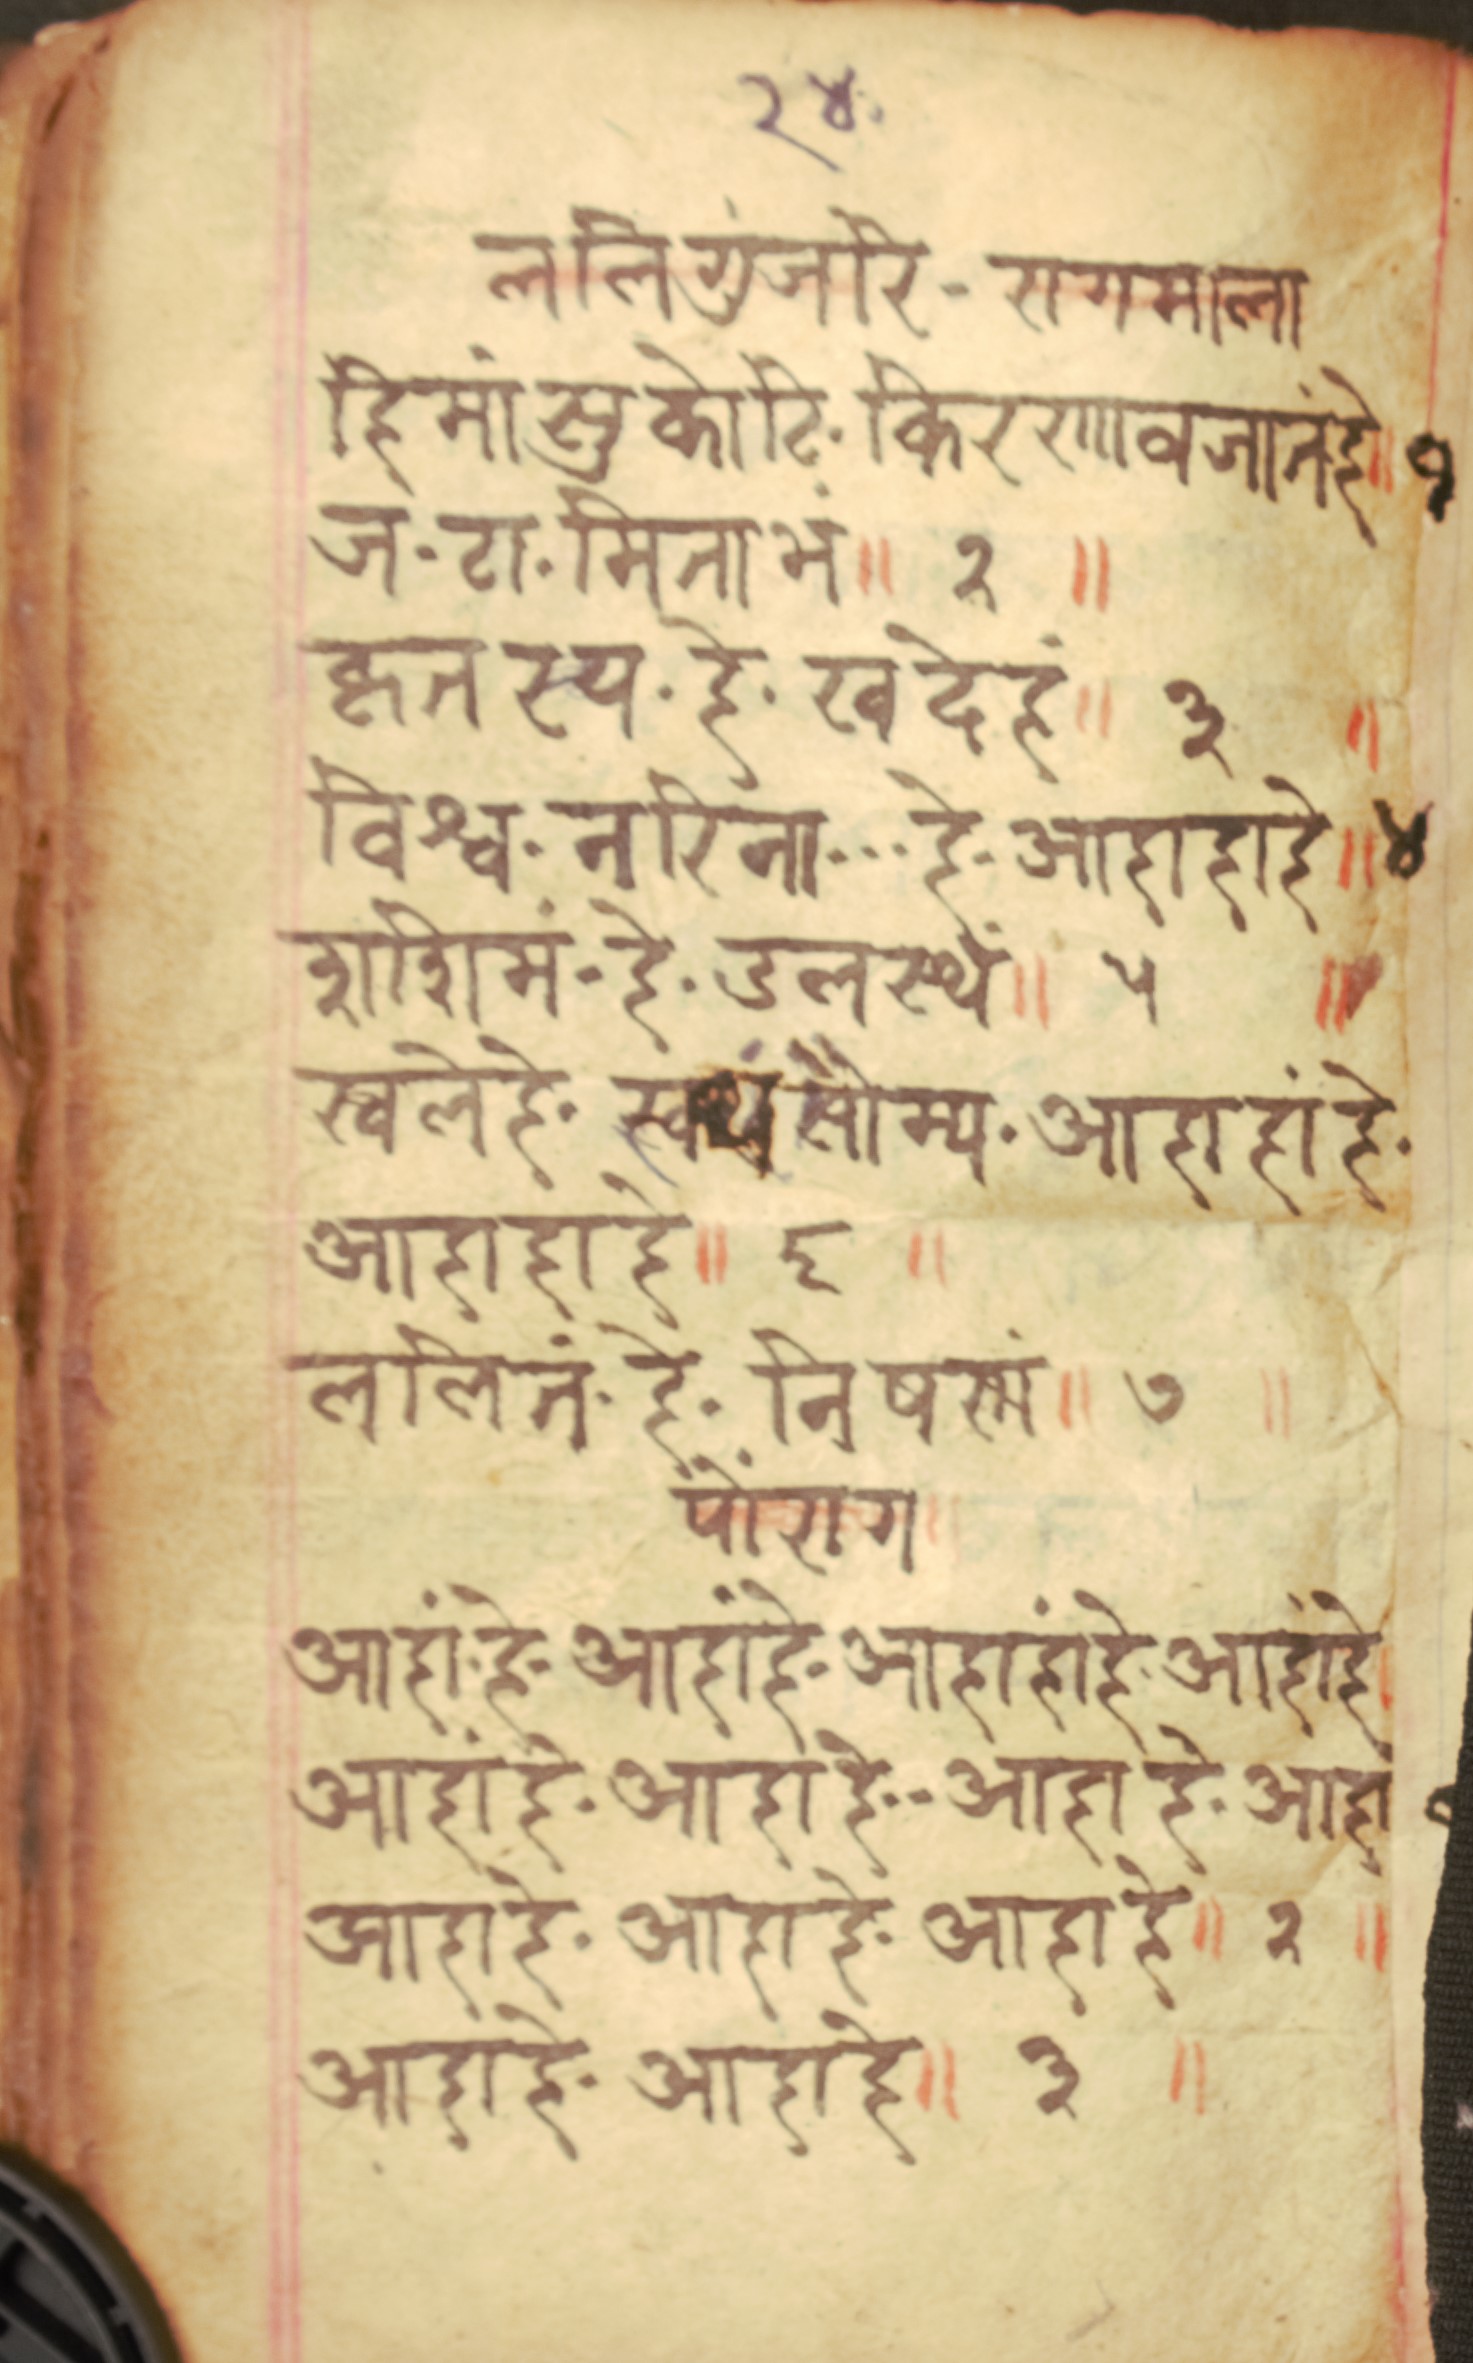 २४
ललिगुंजरि - रागमाला
हिमांसु कोटि· किररणावजानंहे॥ १
ज·टा·मिताभं॥ २ ॥
कृतस्य·हे·खदेहं॥ ३ ॥
विश्व·नरिना···हे·आहाहाहे॥ ४
शशिमं·हे·डलस्थं॥ ५ ॥
स्वलेहे· सौम्य·आहाहांहे·
आहाहाहे॥ ६ ॥
ललितं·हे·निषस्मं॥ ७ ॥
पोंराग
आहां·हे·आहांहे·आहाहांहे·आहांहे
आहांहे·आहाहे··आहाहे·आहा
आहाहे·आहाहे·आहाहे॥ २ ॥
आहाहे·आहाहे॥ ३ ॥